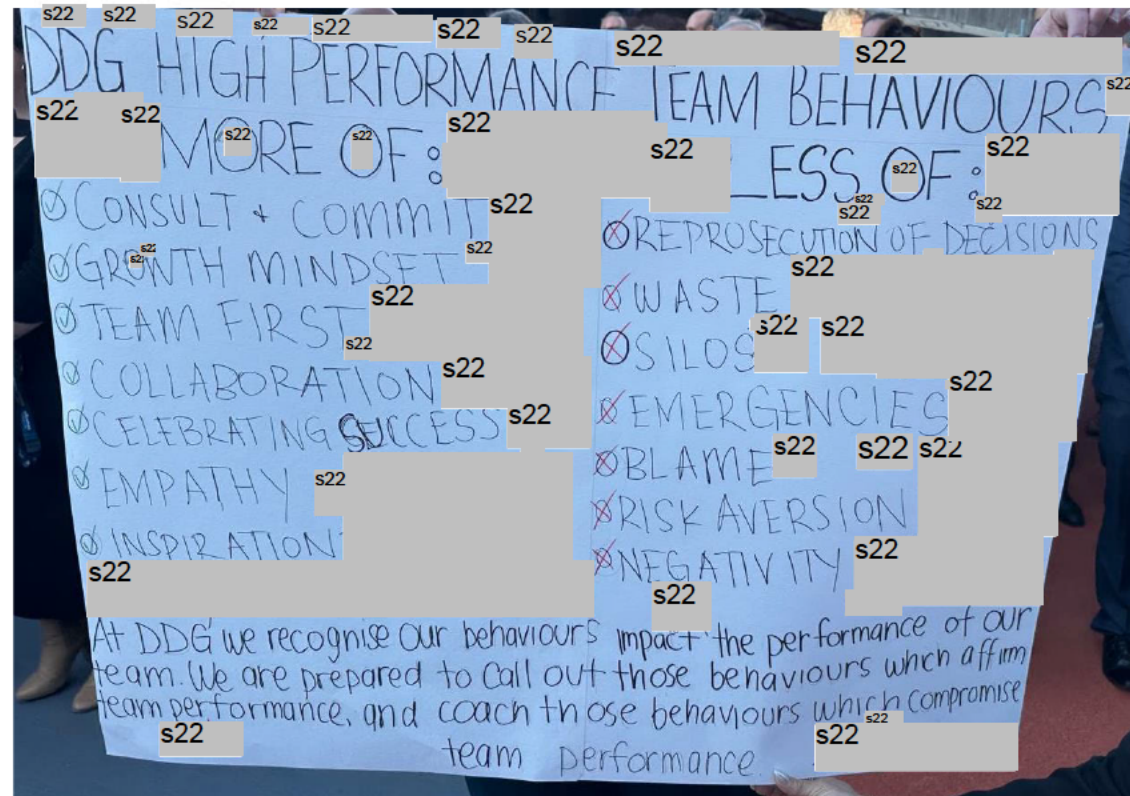 s22 s22 s22 s22 s22 s22 s22 s22 s22
DDG HIGH PERFORMANCE TEAM BEHAVIOURS s22
s22 s22 MORE OF: s22 s22 s22 s22 LESS OF: s22 s22
CONSULT + COMMIT s22
GROWTH MINDSET s22 s22 s22
TEAM FIRST s22 s22
COLLABORATION s22
CELEBRATING SUCCESS s22
EMPATHY s22
INSPIRATION
s22
s22 s22 s22
REPROSECUTION OF DECISIONS
WASTE s22
SILOS s22 s22
EMERGENCIES s22
BLAME s22 s22 s22
RISK AVERSION
NEGATIVITY s22
s22
At DDG we recognise our behaviours impact the performance of our
team. We are prepared to call out those behaviours which affirm
team performance, and coach those behaviours which compromise
team performance.
s22 s22 s22